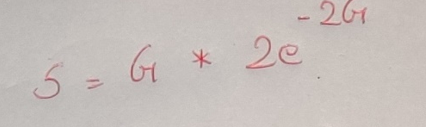 S = G * 2e^{-2G}